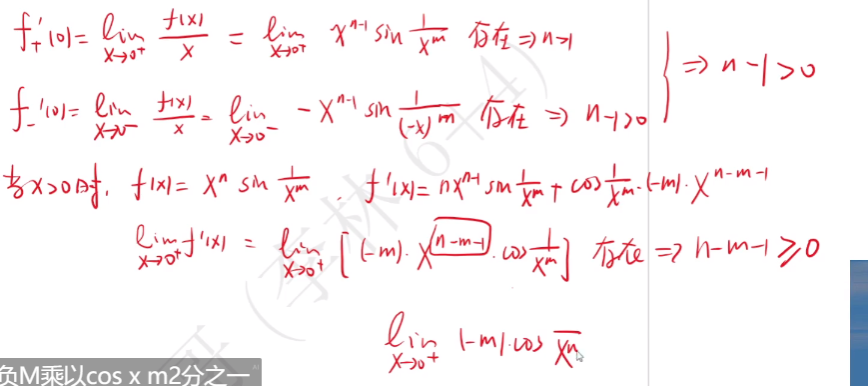 f₊'(0) = lim_{x→0⁺} f(x)/x = lim_{x→0⁺} x^{n-1} sin 1/x^m 存在 ⇒ n>1
f₋'(0) = lim_{x→0⁻} f(x)/x = lim_{x→0⁻} -x^{n-1} sin 1/(-x)^m 存在 ⇒ n-1>0
} ⇒ n-1>0
当x>0时, f(x) = x^n sin 1/x^m . f'(x) = nx^{n-1} sin 1/x^m + cos 1/x^m · (-m) · x^{n-m-1}
lim_{x→0⁺} f'(x) = lim_{x→0⁺} [(-m) · x^{n-m-1} · cos 1/x^m] 存在 ⇒ n-m-1 ≥ 0
lim_{x→0⁺} (-m) · cos
哥(李林6+4)
负M乘以cos x m2分之一